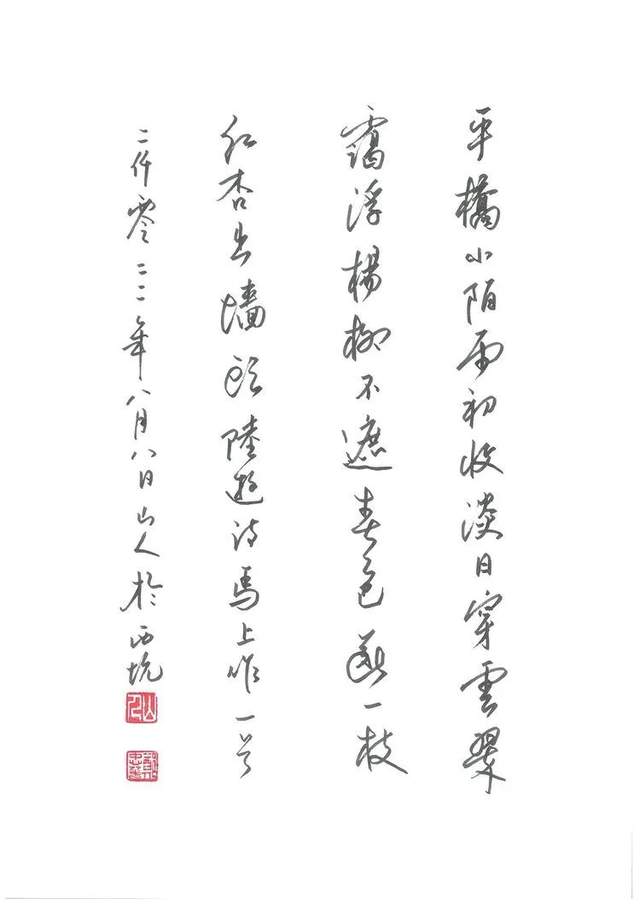 平橋小陌雨初收淡日穿雲翠
靄浮楊柳不遮春色斷一枝
红杏出墙頭陸遊诗馬上作一首
二仟零二二年八月八日山人於西坑
山人